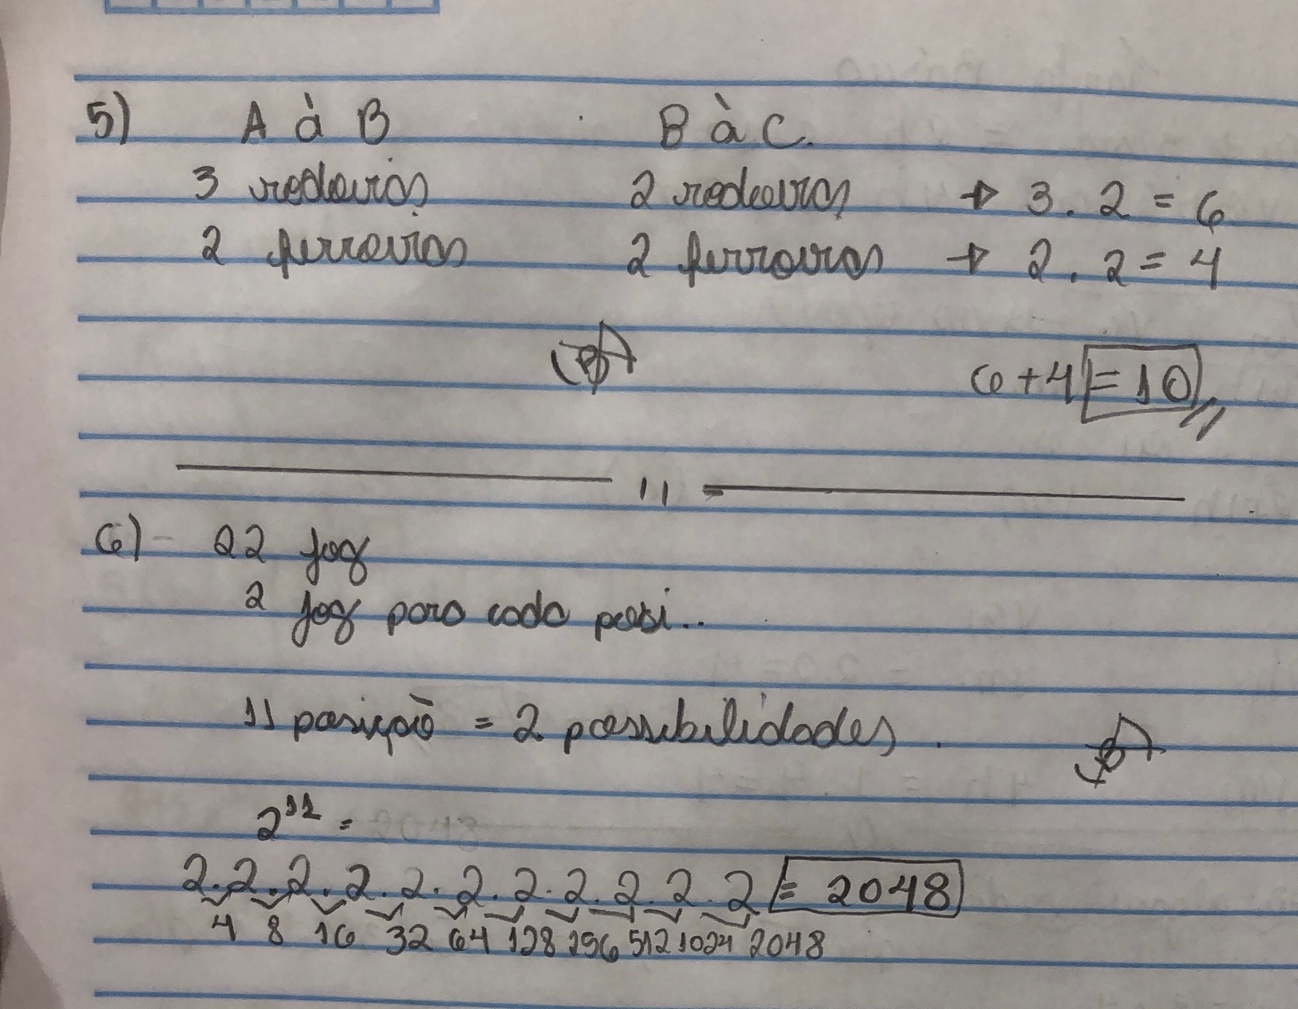 5) A à B B à C.
3 rodovias 2 rodovias → 3 . 2 = 6
2 ferrovias 2 ferrovias → 2 . 2 = 4
6 + 4 = 10
11
6) 22 jog
2 jog para cada posi..
11 posição = 2 possibilidades.
2¹¹ =
2.2.2.2.2.2.2.2.2.2.2 = 2048
4 8 16 32 64 128 256 512 1024 2048